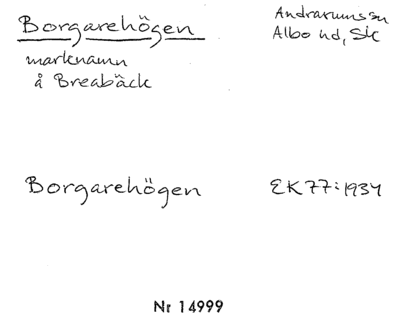 Borgarehögen
Andrarums sn
Albo hd, Sk
marknamn
å Breabäck
Borgarehögen
EK 77:1934
Nr 14999